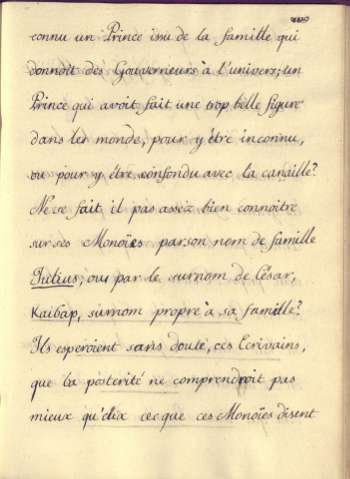 connu un Prince issu de la famille qui
donnoit des Gouverneurs à l'univers; un
Prince qui avoit fait une trop belle figure
dans les monde, pour y être inconnu,
ou pour y être confondu avec la canaille?
Ne se fait il pas assez bien connoitre
sur ses Monoïes par son nom de famille
Julius; ou par le surnom de César,
Καίσαρ, surnom propre à sa famille?
Ils esperoient sans doute, ces Ecrivains,
que la posterité ne comprendroit pas
mieux qu'eux ce que ces Monoïes disent